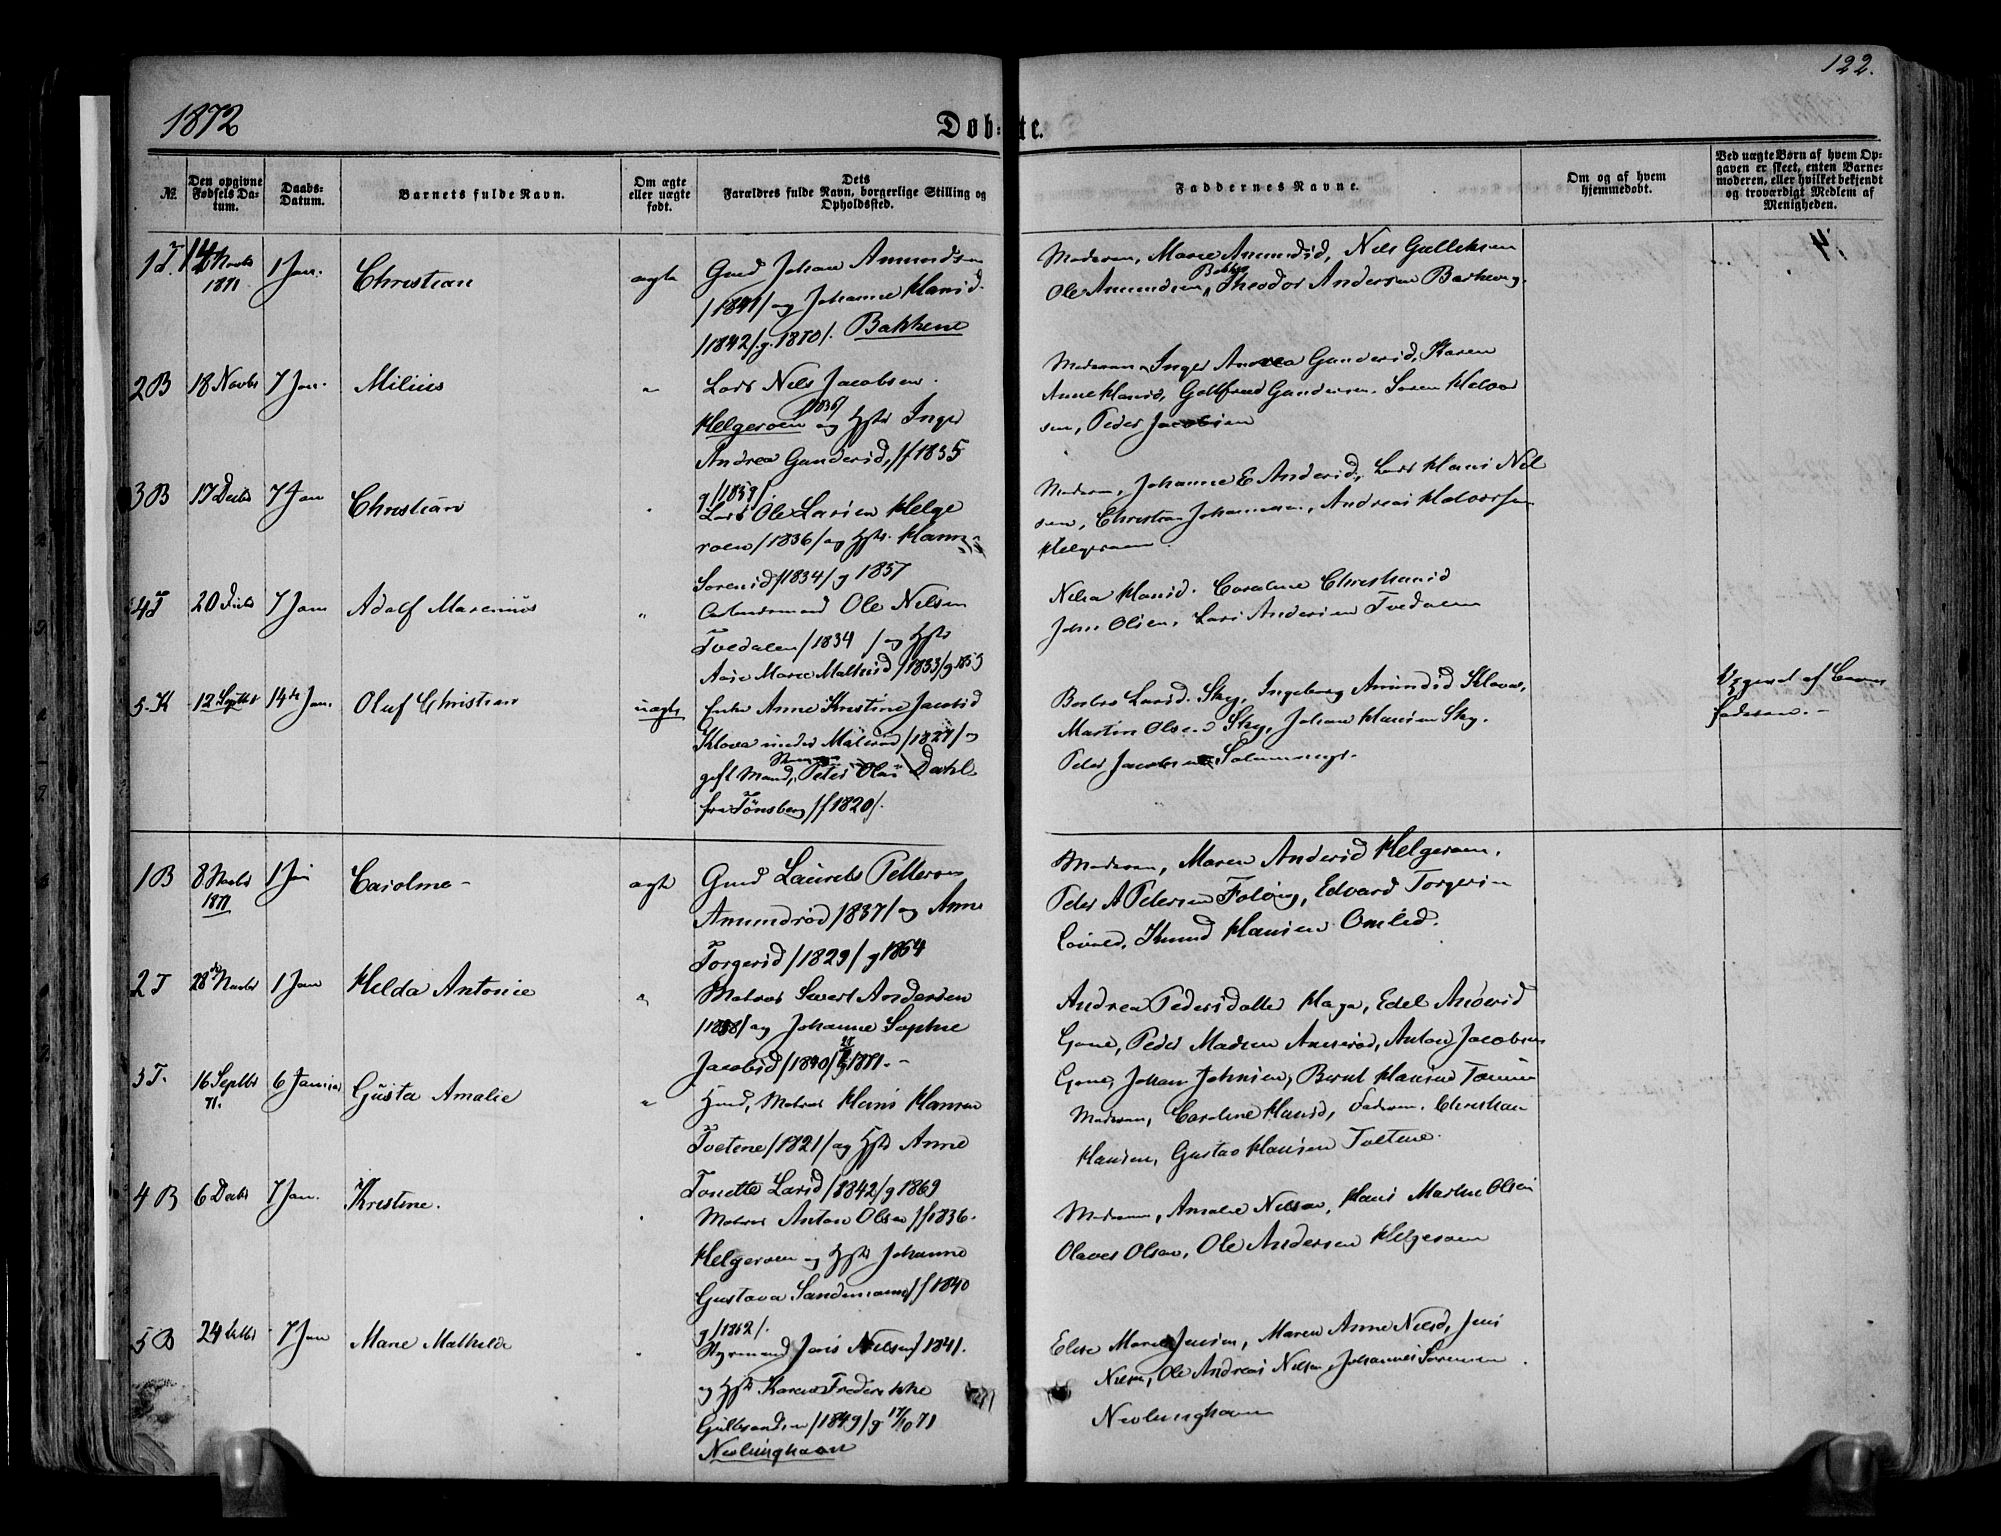 122.
1872
Døb-te.
№.
Den opgivne Fødsels Datum.
Daabs-Datum.
Barnets fulde Navn.
Om ægte eller uægte født.
Dets Forældres fulde Navn, borgerlige Stilling og Opholdssted.
Faddernes Navne.
Om og af hvem hjemmedøbt.
Ved uægte Børn af hvem Opgaven er skeet, enten Barnemoderen, eller hvilket bekjendt og troværdigt Medlem af Menigheden.
1 T
1871
1 Jan.
Christian
ægte
Gmd Johan Amundsen
/1841/ og Johanne Hansd
/1842/. g. 1870/. Bakkene
Moderen, Marie Amundsd, Nils Gulliksen
Ole Amundsen, Theodor Andersen Barkevig.
2 B
18 Novbr
7 Jan.
Milius
"
Lods Nils Jacobsen
Helgeroen /1836/ og Hstr Inger
Andrea Gundersd, /f 1835
g /1859/.
Moderen, Inger Andrea Gundersd, Karen
Anne Hansd, Gottfried Gundersen, Søren Halvor
sen, Peder Jacobsen
3 B
17 Decbr
7 Jan
Christian
"
Lods Ole Larsen Helge
roen /1836/ og Hstr. Hanne
Sørensd /1834/ g 1857
Moderen, Johanne E Andersd, Lars Hans Niel
sen, Christian Johannesen, Andreas Halvorsen
Helgeroen
4 T
20 Decbr
7 Jan
Adolf Marinius
"
Arbeidsmand Ole Nilsen
Tvedalen /1834 / og Hstr
Aase Marie Mathisd /1833/ g 1853
Nilia Hansd. Caroline Christiansd
John Olsen, Lars Andersen Tvedalen
5. K
12 Septbr
14de Jan.
Oluf Christian
uægte
Enke Anne Kristine Jacobsd
Klova under Målerød /1827/ og
gift Mand, Peter Olai Dahl
fra Tønsberg /f 1820/.
Barbro Larsd. Sky, Ingeborg Amundsd Klova,
Martin Olsen Sky, Johan Hansen Sky.
Peder Jacobsen
Opgivet af Barne
faderen. -
1 B
8 Novbr
1871
1 Jan
Caroline -
ægte
Gmd Laurits Pettersen
Amundrød /1837/ og Anne
Torgersd /1829/ g 1854
Moderen, Maren Andersd Helgeroen,
Peder A Pedersen Foldvig, Edvard Torgersen
Løvald, Knud Hansen Omlid.
2 T
28de Novbr
1 Jan
Helda Antonie
"
Matros Sivert Andersen
/1838/ og Johanne Sophie
Jacobsd /1840/ 1871. -
Andrea Pedersdatter Haga, Edel Andersd
Gone, Peder Madsen Amerød, Anton Jacobsen
Gone, Johan Johnsen, Bernt Hansen
3 T.
16 Septbr
71.
6 Januar
Gusta Amalie
"
Hmd, Matros Hans Hansen
Tvetene /1821/ og Hstr Anne
Tonette Larsd /1842/ g 1869
Moderen, Caroline Hansd, Faderen. Christian
Hansen, Gustav Hansen Tvetene.
4 B
6 Decbr
7 Jan.
Kristine.
"
Matros Anton Olsen /f 1836.
Helgeroen og Hstr Johanne
Gustava Sandemand /f 1840
g /1862/.
Moderen, Amalie Nielsen, Hans Martin Olsen
Olaves Olsen, Ole Andersen Helgeroen
5 B
24 Oktbr
7 Jan
Marie Mathilde
"
Styrmand Joris Nielsen / 1841.
og Hstr Karen Fredrikke
Gulbrandsen /1849/ g 17/10 71
Nevlunghavn
Elise Marie Jensen, Maren Anne Nielsd, Jens
Nielsen, Ole Andreas Nielsen, Johannes Sørensen
Nevlunghavn